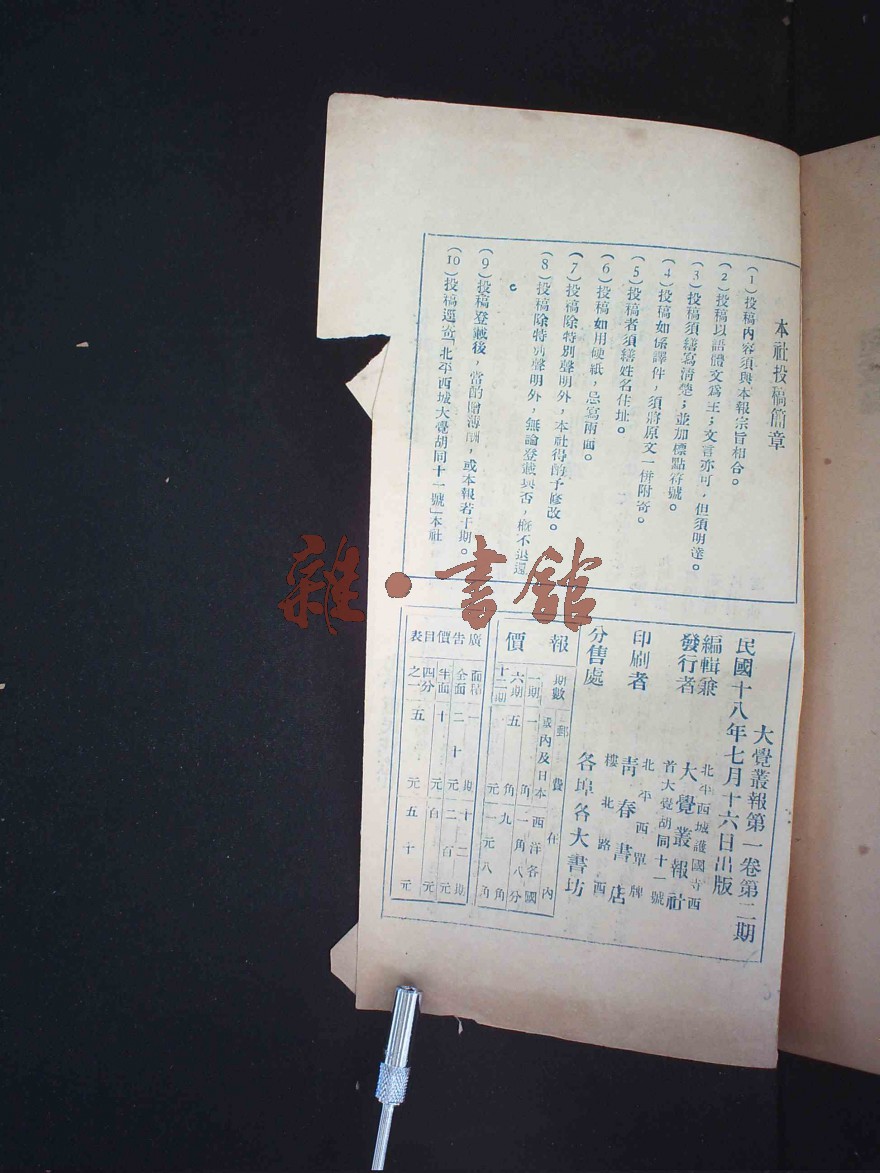 本社投稿簡章
(1)投稿內容須與本報宗旨相合。
(2)投稿以語體文爲主；文言亦可，但須明達。
(3)投稿須繕寫清楚；並加標點符號。
(4)投稿如係譯件，須將原文一併附寄。
(5)投稿者須繕姓名住址。
(6)投稿如用硬紙，忌寫兩面。
(7)投稿除特別聲明外，本社得酌予修改。
(8)投稿除特別聲明外，無論登載與否，概不退還
(9)投稿登載後，當酌贈薄酬，或本報若干期。
(10)投稿逕寄「北平西城大覺胡同十一號」本社
大覺叢報第一卷第二期
民國十八年七月十六日出版
編輯兼發行者
北平西城護國寺西
大覺叢報社
首大覺胡同十一號
印刷者
北平西單牌
青春書店
樓北路西
分售處
各埠各大書坊
報價
期數 郵費在內
國內及日本 西洋各國
一期 一角 一角八分
六期 五角 九角
十二期 一元 一元八角
廣告價目表
面積 一期 十二期
全面 二十元 二百元
半面 十元 百元
四分之一 五元 五十元
雜·書館